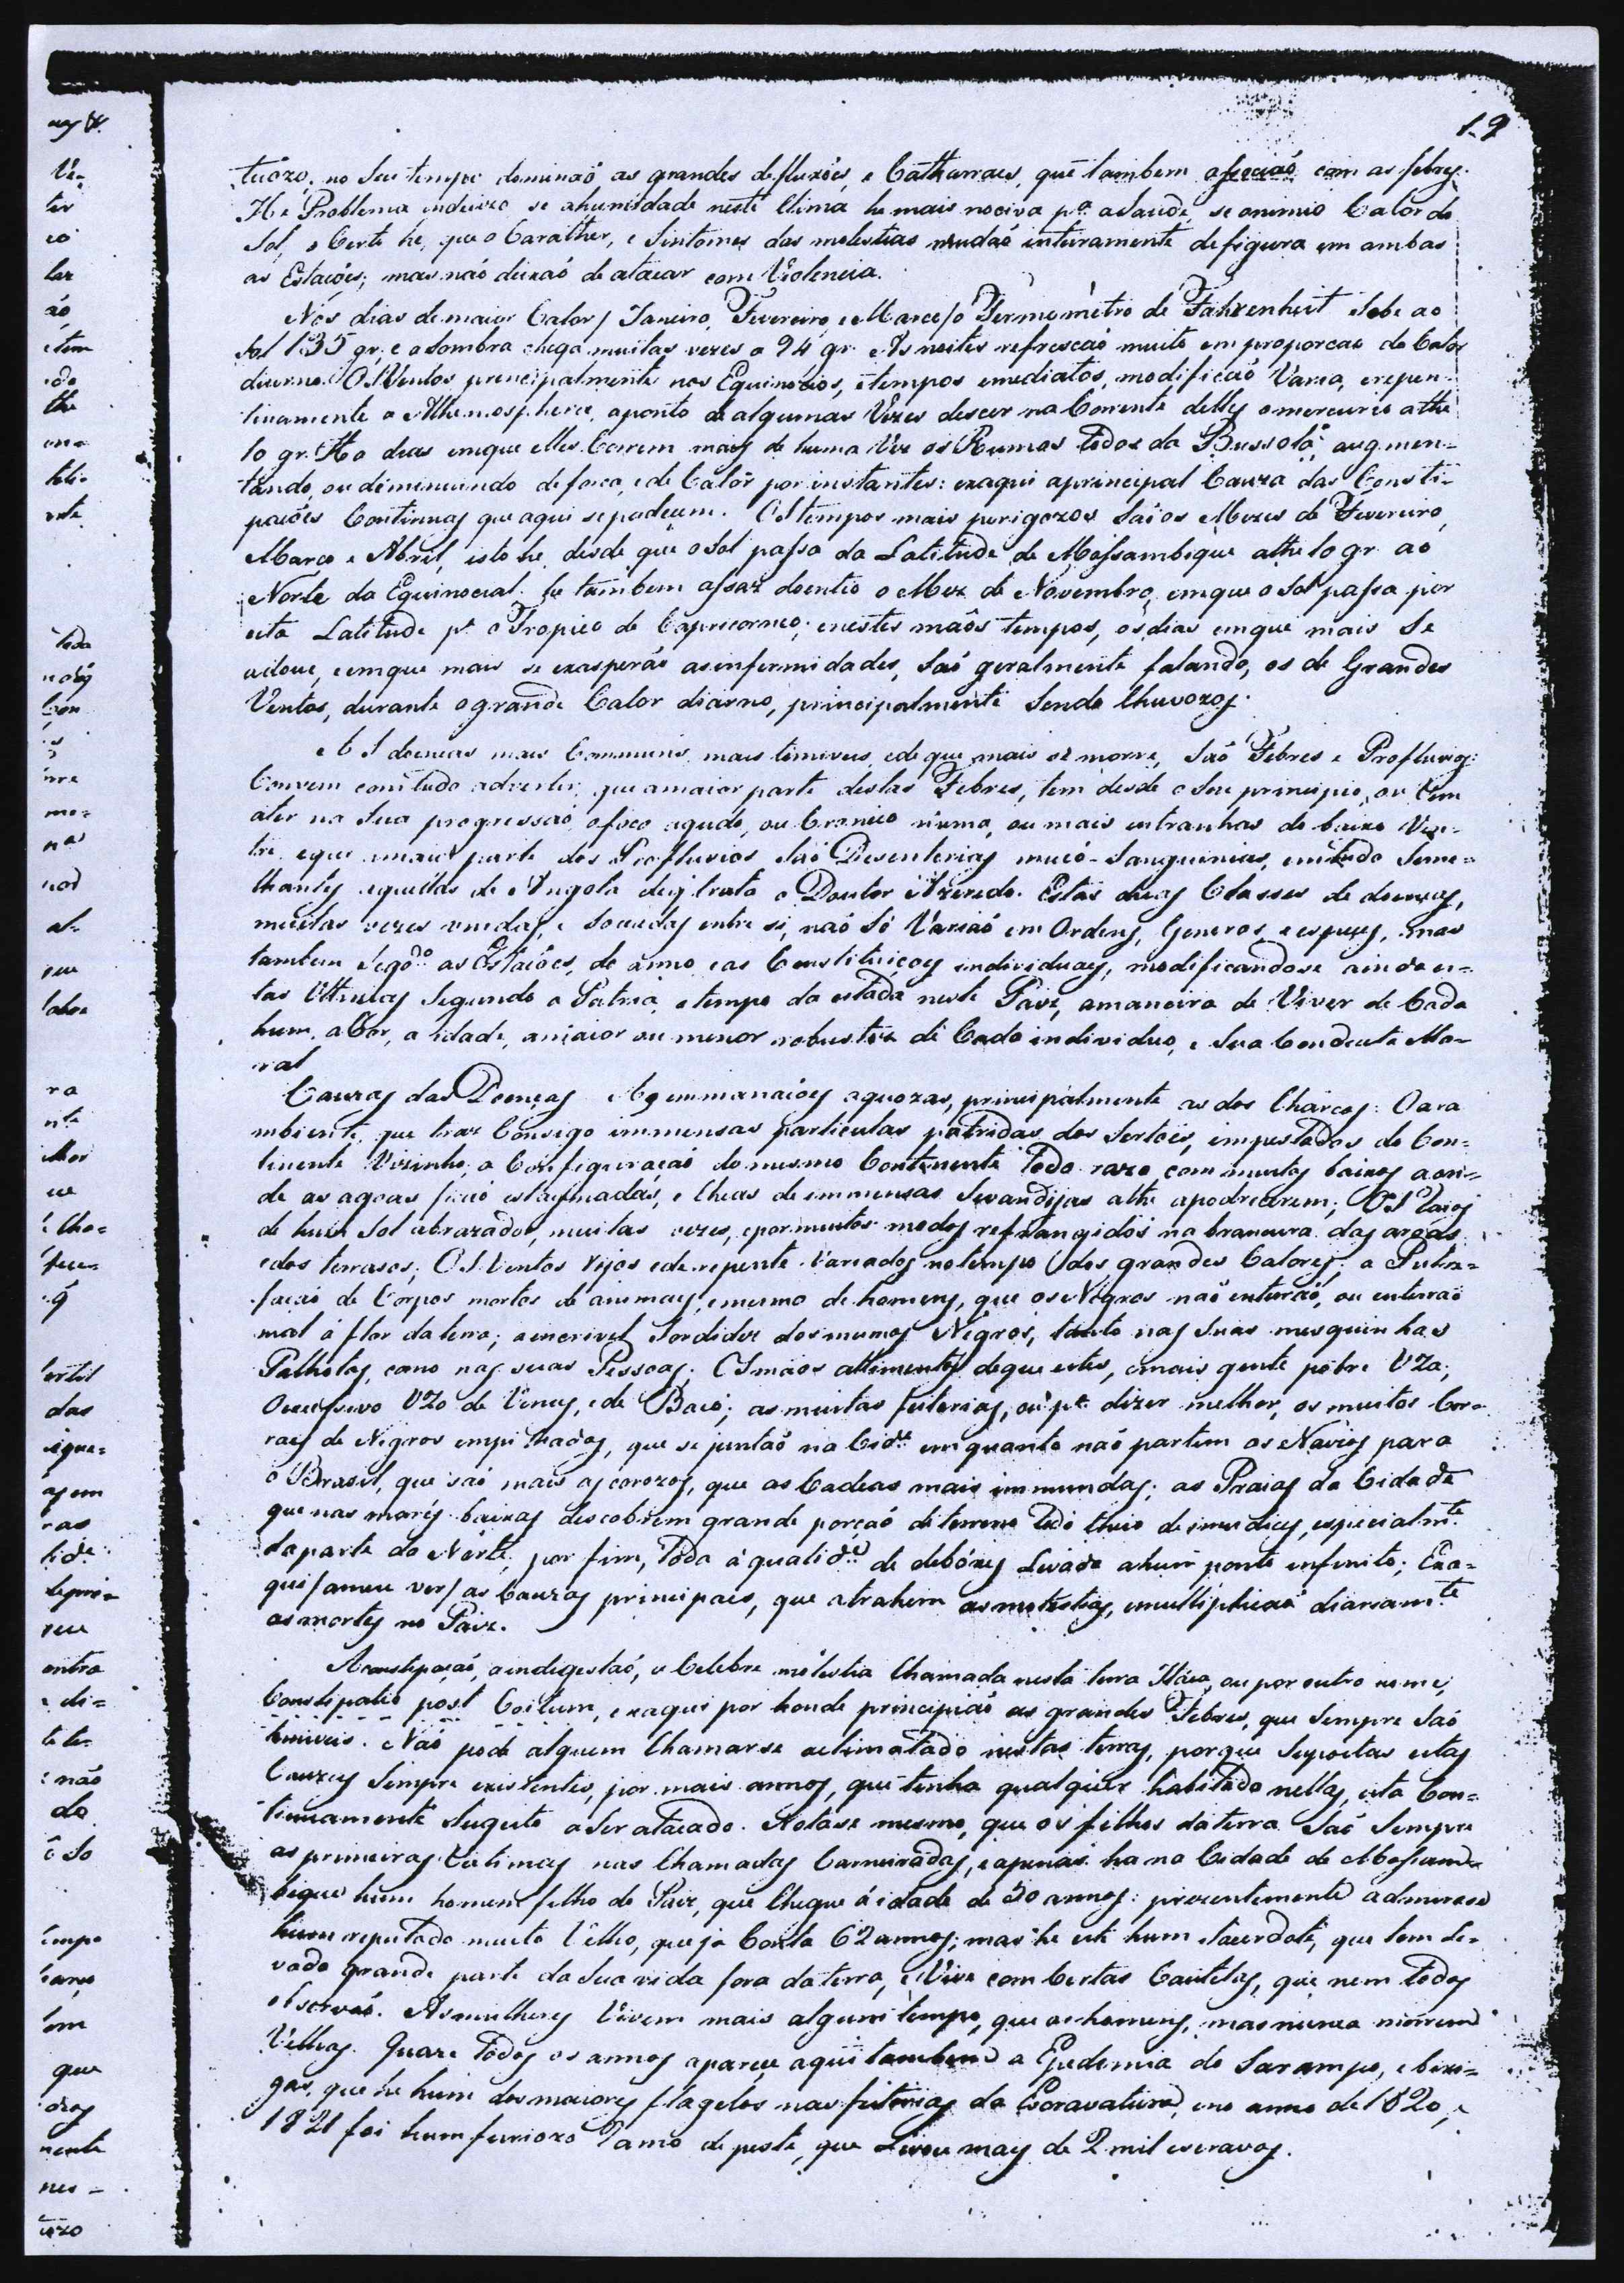 19
tuózo, no seu tempo dominaõ as grandes defluxões, e Catharraes, que tambem aparecem com as febres.
He Problema indeciso se ahumidade neste Clima he mais nociva pª asaude, se onimio Calor do
Sol, o Certo he, que o Carather, e Sintomas das molestias mudaõ inteiramente defigura em ambas
as Estacões; mas não deixaõ de atacar com Violencia.
Nos dias de maior Calor / Janeiro, Fevereiro, e Marco / o Termometro de Fahrenheit sobe ao
Sol 135 gr. e a sombra chega muitas vezes a 94 gr. As noites refrescaõ muito em proporcaõ do Calor
diurno. Os Ventos principalmente nos Equinocios, e tempos imediatos, modificaõ Varia, e repen-
tinamente a Athemosphera, aponto de algumas Vezes descer na Corrente delles o mercurio athe
10 gr. Ha dias emque elles Correm mais de huma Vez os Rumos todos da Bussola, augmen-
tando, ou diminuindo deforca, e de Calor por instantes: exaqui aprincipal Cauza das Consti-
pacões Continuas que aqui sepadecem. Os tempos mais perigozos saõ os Mezes de Fevereiro,
Marco e Abril, isto he, desde que o Sol passa da Latitude de Mossambique athe 10 gr. ao
Norte da Equinocial. he tambem assaz doentio o Mez de Novembro, emque o Sol passa por
esta Latitude pª o Tropico de Capricorneo; enestes maõs tempos, os dias emque mais se
adoece, e emque mais se exasperaõ as enfermidades, saõ geralmente falando, os de Grandes
Ventos, durante o grande Calor diurno, principalmente sendo Chuvozos.
As doencas mais Communs mais temiveis, e de que mais se morre, saõ Febres e Profluvios.
Convem comtudo advertir, que amaior parte destas Febres, tem desde o seu principio, ou Vem
ater na sua progressaõ, o foco agudo, ou Cronico numa, ou mais entranhas do baixo Ven-
tre, e que amaior parte dos Profluvios saõ Desenterias mucó-Sanguineas, em tudo seme-
lhantes aquellas de Angola de que trata o Doutor Azeredo. Estas duas Classes de doencas,
muitas vezes unidas, e Sociadas entre si, naõ só Variaõ em Ordens, Generos, e especies, mas
tambem segdo as Estacões do anno e as Constituiçoes individuaes, modificandose ainda es-
tas Ultimas segundo a Patria, e tempo da estada neste Paiz, amaneira de Viver de Cada
hum, a Cor, a idade, a maior ou menor robustez de Cada individuo, e sua Conducta Mo-
ral
Cauzas das Doenças As emmanacões aquozas, principalmente as dos Charcos. O ar a
mbiente, que traz Consigo immensas particulas putridas dos sertões, impestados do Con-
tinente Vezinho, a Configuraçaõ do mesmo Continente todo razo com muitos baixos aon-
de as agoas ficaõ estagnadas, e Cheas de immensas Sevandijas athe apodrecerem; Os Raios
de hum Sol abrazador, muitas vezes, e por muitos modos refrangidos na brancura das areas
e dos terrasos; Os Ventos rijos e de repente Variados no tempo dos grandes Calores; a Putre-
facaõ de Corpos mortos de animaes, e mesmo de homens, que os Negros naõ enterraõ, ou enterraõ
mal á flor da terra; a incrivel Sordidez dos mesmos Negros, tanto nas suas mesquinhas
Palhotas, como nas suas Pessoas; Os maos allimentos de que estes, e mais gente pobre Uza;
O excessivo Uzo de Venus, e de Baco; as muitas feitorias, ou pª dizer melhor, os muitos Cor-
raes de Negros empilhados, que se juntaõ na Cidᵉ em quanto naõ partem os Navios para
o Brasil, que saõ mais ascorozos, que as Cadeas mais immundas; as Praias da Cidade
que nas marés baixas descobrem grande porçaõ de terreno todo Cheio de imundices, especialmᵗᵉ
da parte do Nórte; por fim, Toda a qualidᵉ de debóxes levada a hum ponto infinito; Exa-
qui / a meu ver / as Cauzas principaes, que atrahem as molestias, e multiplicaõ diariamᵗᵉ
as mortes no Paiz.
A constipaçaõ, a indigestaõ, a Celebre molestia Chamada nesta terra, ou por outro nome,
Constipatio post Coitum, exaqui por honde principiaõ as grandes Febres, que sempre saõ
temiveis. Naõ pode alguem Chamarse aclimatado nestas terras, porque supostas estas
Cauzas sempre existentes, por mais annos, que tenha qualquer habitado nellas, está Con-
tinuamente sugeito a ser atacado. Notase mesmo, que os filhos da terra saõ sempre
as primeiras Victimas nas Chamadas Carneiradas, e apenas ha na Cidade de Mossam-
bique hum homem filho do Paiz, que Chegue á idade de 50 annos: prezentemente admirase
hum reputado muito Velho, que já Conta 62 annos; mas he este hum Sacerdote, que tem le-
vado grande parte da sua vida fora da terra, e Vive com Certas Cautelas, que nem todos
observaõ. As mulheres Vivem mais algum tempo, que os homens, mas nunca morrem
Velhas. Quaze todos os annos aparece aqui tambem a Epedemia do Sarampo, e bexi-
gas, que he hum dos maiores flagelos nas feitorias da Escravatura, e no anno de 1820, e
1821 foi hum furiozo ramo de peste, que Levou mais de 2 mil escravos.